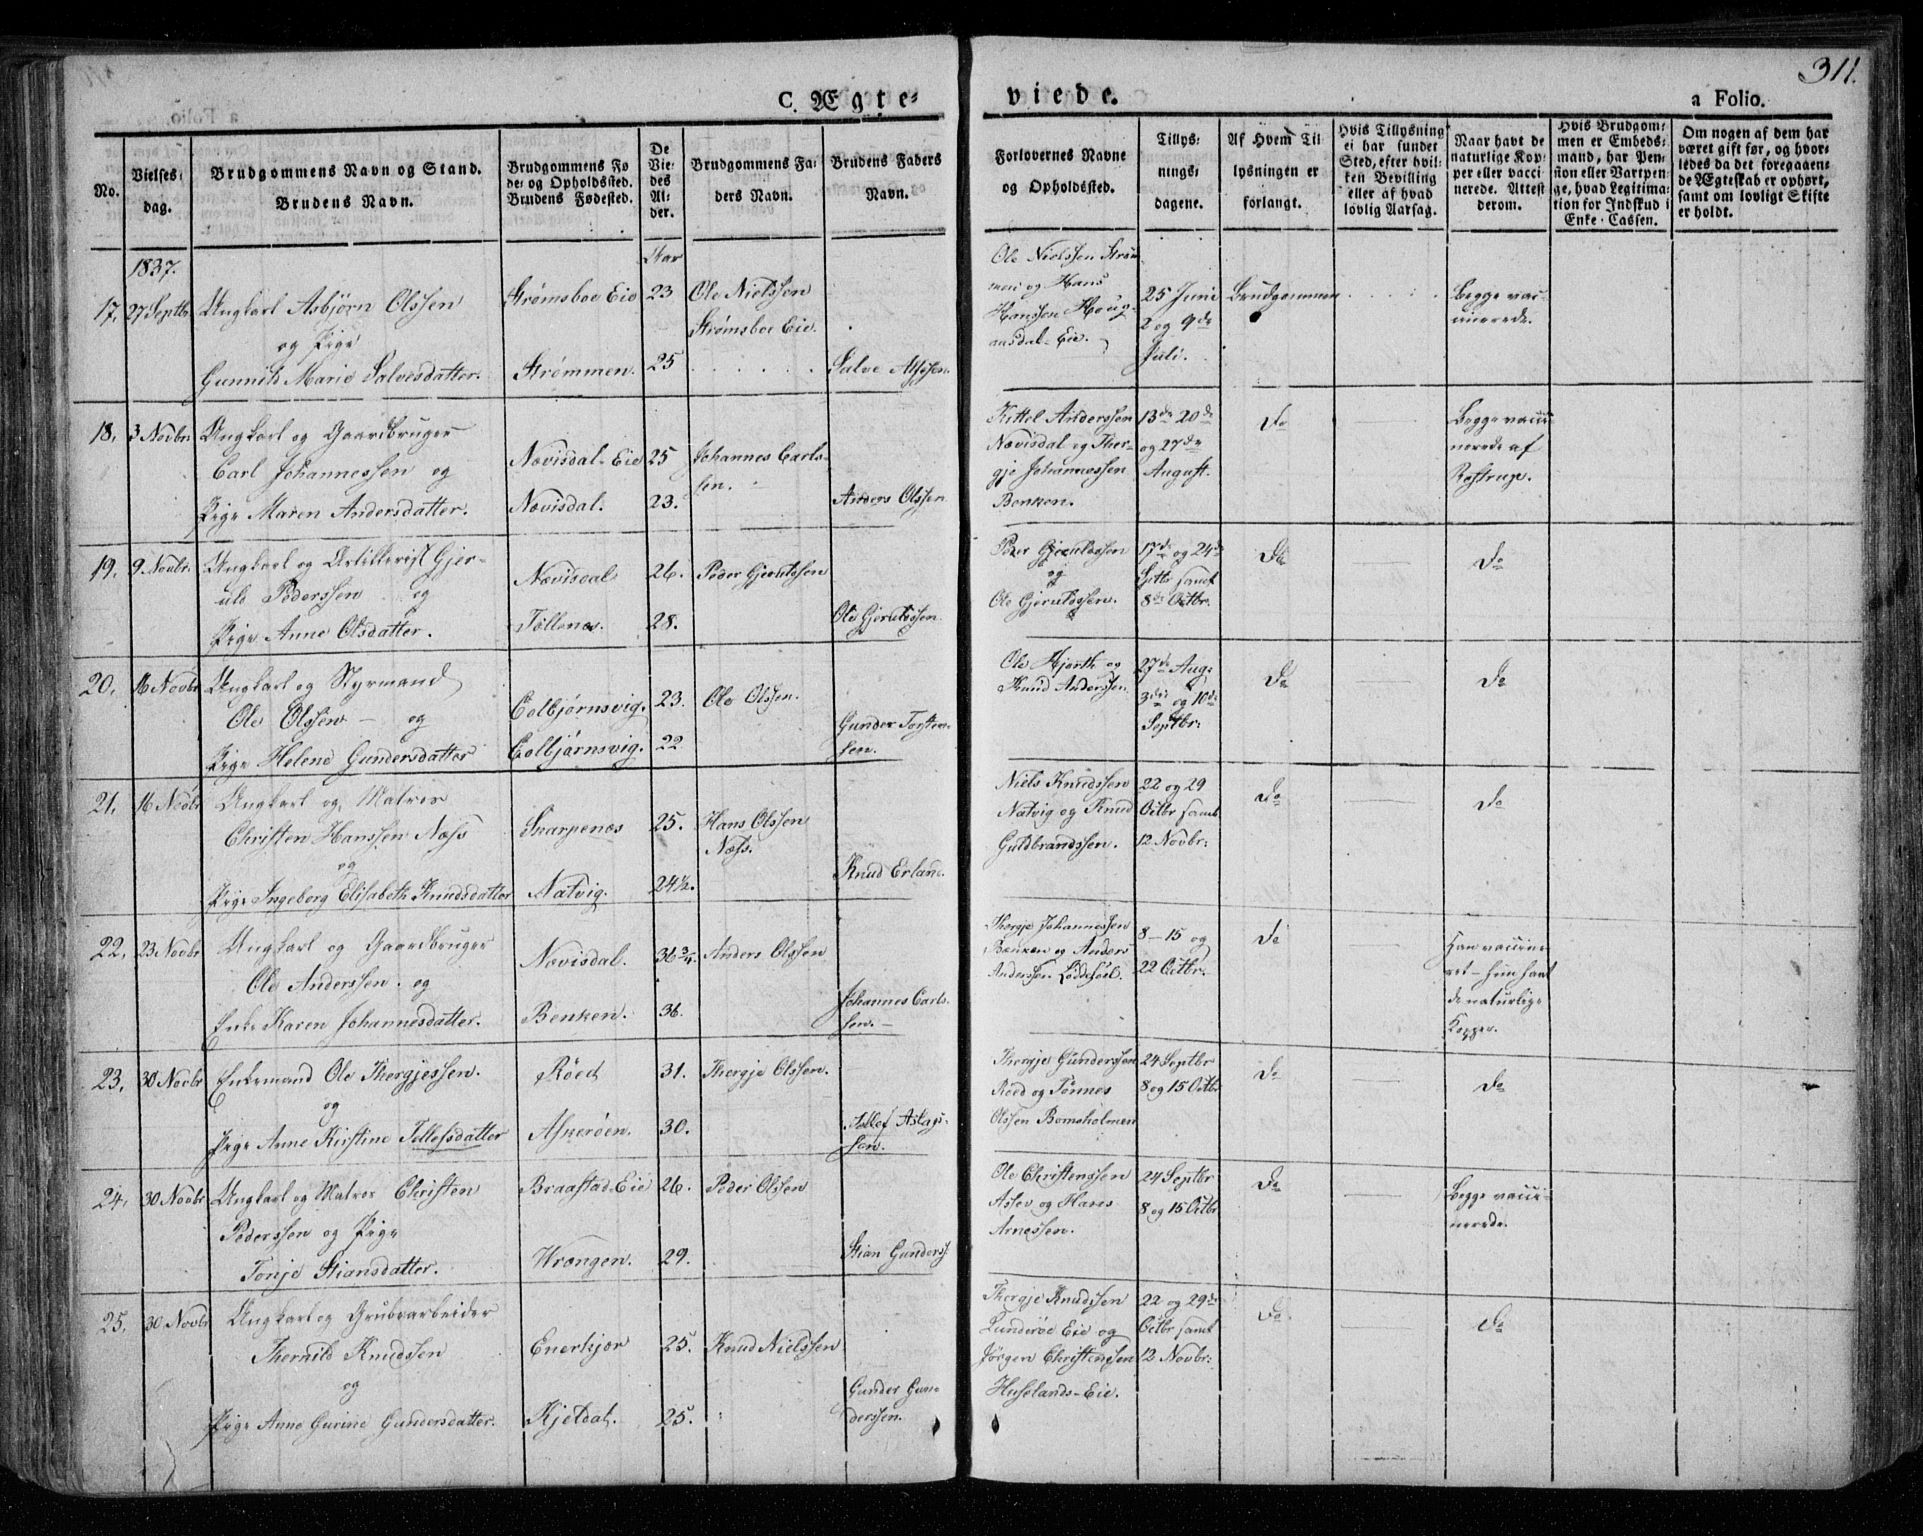 311.
C. Ægte-
viede.
a Folio.
No.
Vielses-
dag.
Brudgommens Navn og Stand.
Brudens Navn.
Brudgommens Fø-
de- og Opholdssted.
Brudens Fødested.
De
Vie-
des
Al-
der.
Brudgommens Fa-
ders Navn.
Brudens Faders
Navn.
Forlovernes Navne
og Opholdssted.
Tillys-
nings-
dagene.
Af Hvem Til-
lysningen er
forlangt.
Hvis Tillysning
ei har fundet
Sted, efter hvil-
ken Bevilling
eller af hvad
lovlig Aarsag.
Naar havt de
naturlige Kop-
per eller vacci-
nerede. Attest
derom.
Hvis Brudgom-
men er Embeds-
mand, har Pen-
sion eller Vartpen-
ge, hvad Legitima-
tion for Indskud i
Enke-Cassen.
Om nogen af dem har
været gift før, og hvor-
ledes da det foregaaen-
de Ægteskab er ophørt,
samt om lovligt Skifte
er holdt.
1837.
Aar
17. 27 Septbr Ungkarl Asbjörn Olssen
og Pige
Gunnild Marie Salvesdatter.
Strømsboe Eie 23 Ole Nielssen
Strømsboe Eie.
Strømmen. 25 Salve
Ole Nielssen
og Hans
Hanssen
25 Juni
2 og 9de
Juli.
Brudgommen
Begge vac-
cinerede.
18. 3 Novbr. Ungkarl og Gaardbruger
Carl Johannessen og
Pige Maren Andersdatter.
Nævisdal-Eie 25 Johannes Carls-
sen.
Nævisdal. 23. Anders Olssen
Kittel Anderssen
Nævisdal og Ther-
gje Johannessen
Benken.
13de 20de
og 27de
August.
do
Begge vacci-
nerede af
Rostrup.
19. 9 Novbr. Ungkarl og Artillerist Gjer-
uld Pederssen og
Pige Anne Olsdatter.
Nævisdal 26. Peder Gjeruldssen
Tellenes. 28. Ole Gjeruldssen
Peer Gjeruldssen
og
Ole Gjeruldssen.
17de og 24de
Septbr samt
8de Octbr.
do
do
20. 16 Novbr Ungkarl og Styrmand
Ole Olssen - og
Pige Helene Gundersdatter
Colbjørnsvig. 23. Ole Olssen.
Colbjørnsvig. 22 Gunder Torsten-
sen.
Ole Hjorth og
Knud Anderssen.
27de Aug:
3die og 10de
Septbr:
do
do
21. 16 Novbr Ungkarl og Matros
Christen Hanssen Næss
og
Pige Ingeborg Elisabeth Knudsdatter
Snarpenæs 25. Hans Olssen
Næss.
Natvig. 24½. Knud Erland.
Niels Knudssen
Natvig og Knud
Guldbrandssen.
22 og 29
Octbr samt
12 Novbr:
do
do
22. 23 Novbr Ungkarl og Gaardbruger
Ole Anderssen. og
Enke Karen Johannesdatter.
Nævisdal. 36¾. Anders Olssen
Benken. 36. Johannes Carls-
sen.
Thergje Johannessen
Benken og Anders
Anderssen Løddesöel.
8 - 15 og
22 Octbr.
do
Han vaccine-
ret - hun havt
de naturlige
Kopper.
23. 30 Novbr Enkemand Ole Thergjessen.
og
Pige Anne Kirstine Tellefsdatter
Röed 31. Thergje Olssen.
Askeröen. 30. Tellef Aslags-
sen.
Thergje Gunderssen
Roed og Tönnes
Olssen Bomsholmen
24 Septbr
8 og 15 Octbr
do
do
24. 30 Novbr Ungkarl og Matros Christen
Pederssen og Pige
Tonje Stiansdatter.
Braastad-Eie 26. Peder Olssen
Wrængen. 29. Stian Gunderss.
Ole Christenssen
Aslev og Hans
Arnessen.
24 Septbr
8 og 15 Octbr
do
Begge vacci-
nerede.
25. 30 Novbr Ungkarl og Grubearbeider
Thernild Knudssen
og
Pige Anne Gurine Gundersdatter.
Enerhjor 25. Knud Nielssen
Kjetdal. 25. Gunder Gun-
derssen.
Thergje Knudssen
Lunderöe Eie og
Jörgen Christenssen
Huselands-Eie.
22 og 29de
Octbr samt
12 Novbr:
do
do